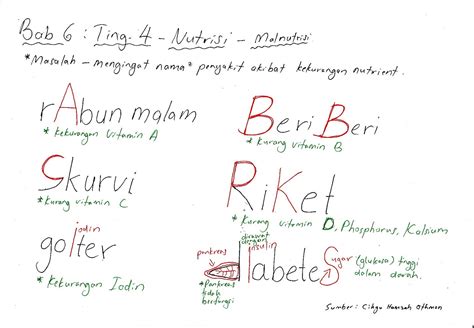 Bab 6 : Ting. 4 - Nutrisi - Malnutrisi
* Masalah - mengingat nama² penyakit akibat kekurangan nutrient.
rAbun malam
* Kekurangan Vitamin A
BeriBeri
* Kurang vitamin B
Skurvi
* Kurang vitamin C
RiKet
* Kurang vitamin D, Phosphorus, Kalsium
iodin
goIter
* Kekurangan Iodin
dirawat dengan
insulin
pankreas
diabeteS
Sugar (glukosa) tinggi
dalam darah.
* Pankreas
tidak
berfungsi
Sumber : Cikgu Hamzah Othman